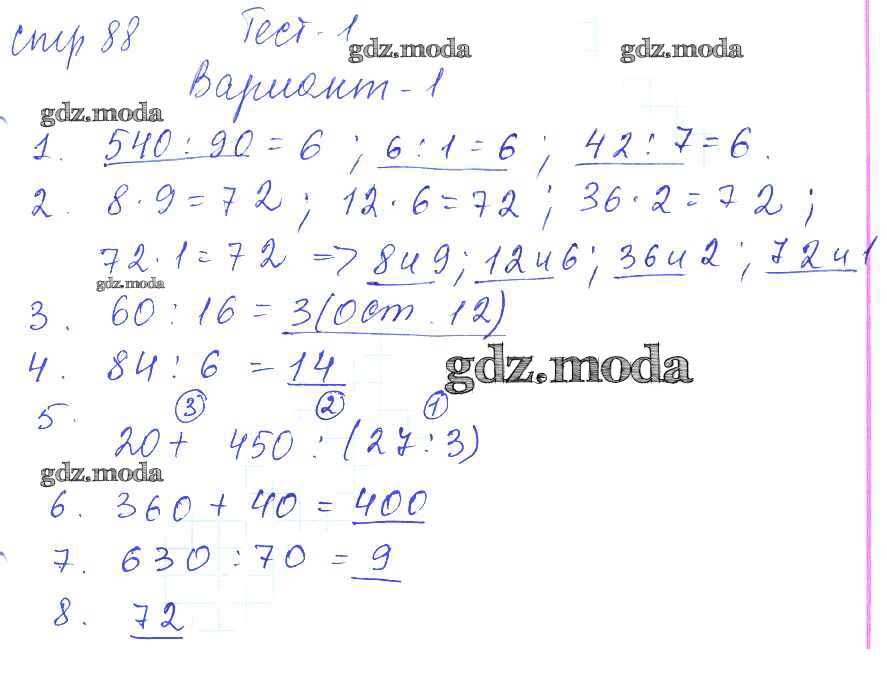 стр 88 Тест-1
gdz.moda gdz.moda
Вариант-1
gdz.moda
1. 540 : 90 = 6 ; 6 : 1 = 6 ; 42 : 7 = 6.
2. 8 · 9 = 72 ; 12 · 6 = 72 ; 36 · 2 = 72 ;
72 · 1 = 72 => 8 и 9 ; 12 и 6 ; 36 и 2 ; 72 и 1
gdz.moda
3. 60 : 16 = 3 (ост. 12)
4. 84 : 6 = 14
gdz.moda
③ ② ①
5. 20 + 450 : (27 : 3)
gdz.moda
6. 360 + 40 = 400
7. 630 : 70 = 9
8. 72